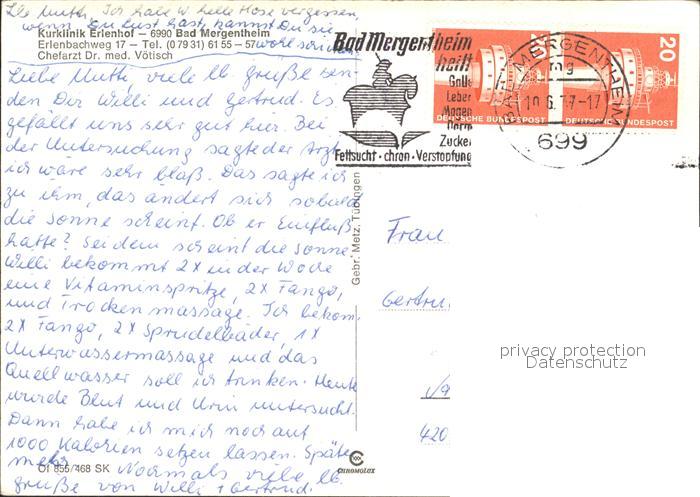 Lb. Mutti, Ich habe W. helle Hose vergessen,
wenn Du Lust hast, kannst Du sie
Kurklinik Erlenhof – 6990 Bad Mergentheim
Erlenbachweg 17 – Tel. (0 79 31) 61 55 – 57
Chefarzt Dr. med. Vötisch
Liebe Mutti, viele lb. Grüße sen-
den Dir Willi und Gertrud. Es
gefällt uns sehr gut hier. Bei
der Untersuchung sagte der Arzt
ich wäre sehr blaß. Das sagte ich
zu ihm, das ändert sich sobald
die Sonne scheint. Ob er Einfluß
hatte? Seidem scheint die Sonne.
Willi bekommt 2x in der Woche
eine Vitaminspritze, 2x Fango,
und Trockenmassage. Ich bekom.
2x Fango, 2x Sprudelbäder, 1x
Unterwassermassage und das
Quellwasser soll ich trinken. Heute
wurde Blut und Urin untersucht.
Dann habe ich mich noch auf
1000 Kalorien setzen lassen. Später
mehr. Nochmals viele lb.
Grüße von Willi + Gertrud.
OI 855/468 SK
Gebr. Metz, Tübingen
CHROMOLUX
Bad Mergentheim
heilt
Galle
Leber
Magen
Darm
Zucker
Fettsucht · chron · Verstopfung
BAD MERGENTHEIM
mg
-17
699
20
DEUTSCHE BUNDESPOST
20
DEUTSCHE BUNDESPOST
Frau
Gertru
420
privacy protection
Datenschutz